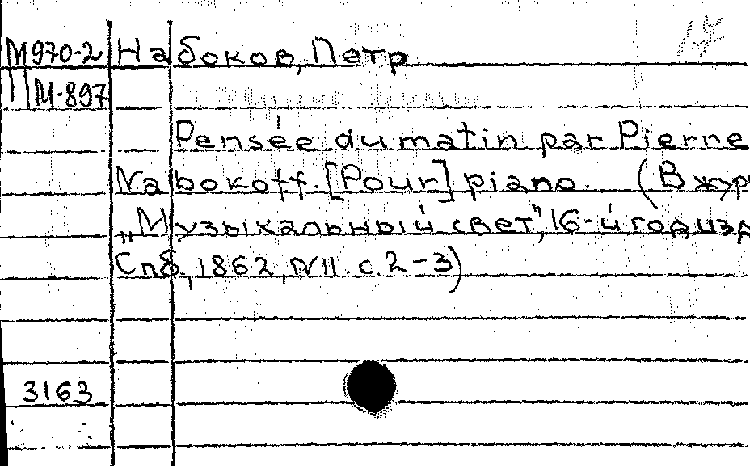 М970-2 Набоков, Петр 17
М-897
Pensée du matin par Pierre
Nabokoff. [Pour] piano. (В жур
„Музыкальный свет", 16-й год изд
Спб, 1862, N11 с. 2-3)
3163